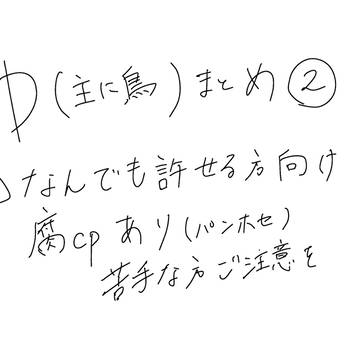 (主に鳥)まとめ②
なんでも許せる方向け
腐cpあり(パンホセ)
苦手な方ご注意を